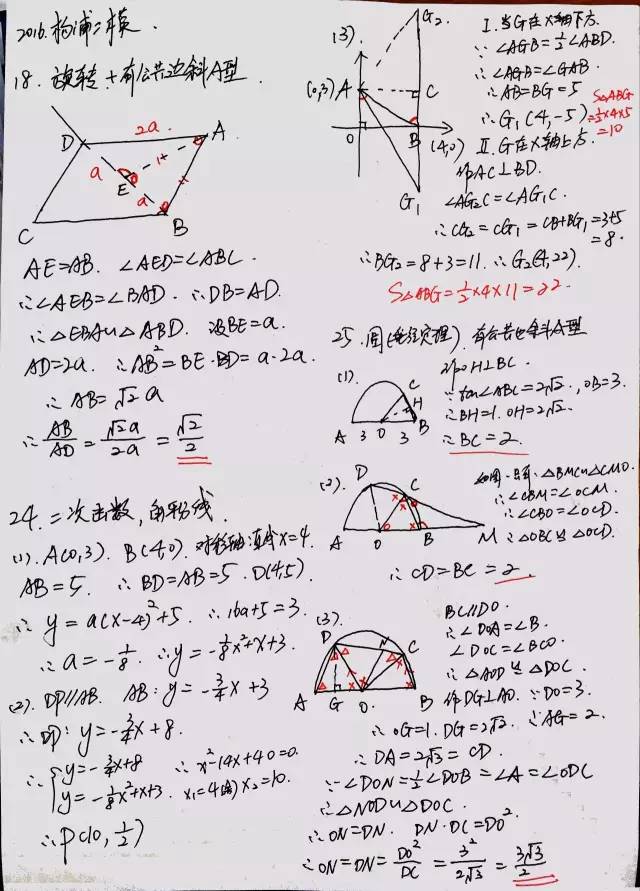 2016.杨浦二模.
18. 旋转+有公共边斜A型.
D
2a
A
a
E
a
C
B
AE=AB. ∠AED=∠ABC.
∴∠AEB=∠BAD. ∴DB=AD.
∴△EBA∽△ABD. 设BE=a.
AD=2a. ∴AB²=BE·BD=a·2a.
∴AB=√2a
∴AB/AD=√2a/2a=√2/2
24. 二次函数, 角平分线.
(1). A(0,3). B(4,0). 对称轴:直线x=4.
AB=5. ∴BD=AB=5. D(4,5).
∴y=a(x-4)²+5. ∴16a+5=3.
∴a=-1/8. ∴y=-1/8x²+x+3.
(2). DP∥AB. AB: y=-3/4x+3
∴DP: y=-3/4x+8.
∴{y=-3/4x+8
y=-1/8x²+x+3.
∴x²-14x+40=0.
x₁=4(舍) x₂=10.
∴P(10, 1/2)
(3)
G₂
(0,3) A
C
O
B
(4,0)
G₁
I. 当G在x轴下方.
∵∠AGB=1/2∠ABD.
∴∠AGB=∠GAB.
∴AB=BG=5
∴G₁(4,-5)
S△ABG
=1/2×4×5
=10
II. G在x轴上方.
作AC⊥BD.
∠AG₂C=∠AG₁C.
∴CG₂=CG₁=CB+BG₁=3+5
=8.
∴BG₂=8+3=11. ∴G₂(4,22).
S△ABG=1/2×4×11=22.
25. 圆(垂径定理). 有公共边斜A型
(1)
C
H
A 3 O 3 B
作OH⊥BC.
∵tan∠ABC=2√2. OB=3.
∴BH=1. OH=2√2.
∴BC=2.
(2).
D
C
A
O
B
M
如图. 易证:△BMC∽△CMO.
∴∠CBM=∠OCM.
∴∠CBO=∠OCD.
∴△OBC≌△OCD.
∴CD=BC=2.
(3)
D
N
C
A
G
O
B
BC∥DO.
∴∠DOA=∠B.
∠DOC=∠BCO.
∴△AOD≌△DOC.
作DG⊥AO. ∵DO=3.
∴OG=1. DG=2√2. ∴AG=2.
∴DA=2√3=CD.
∵∠DON=1/2∠DOB=∠A=∠ODC
∴△NOD∽△DOC.
∴ON=DN. DN·DC=DO².
∴ON=DN=DO²/DC=3²/2√3=3√3/2